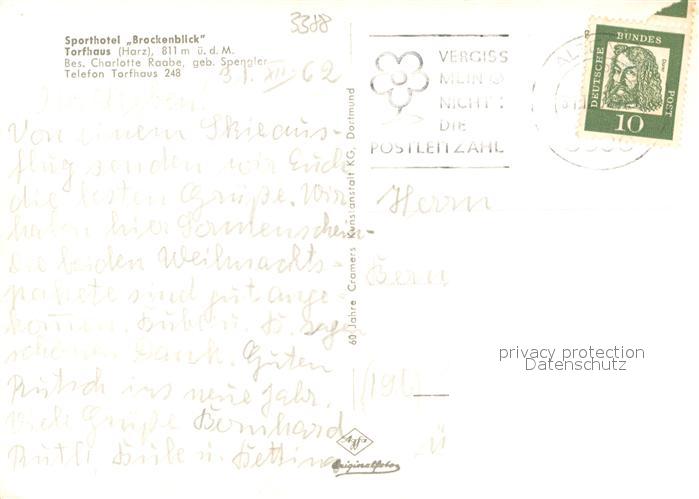 3388
Sporthotel „Brockenblick"
Torfhaus (Harz), 811 m ü. d. M.
Bes. Charlotte Raabe, geb. Spengler
Telefon Torfhaus 248
31. XII. 62
Ihr Lieben.
Von einem Skiaus-
flug senden wir Euch
die besten Grüße. Wir
haben hier Sonnenschein.
Die beiden Weihnachts-
pakete sind gut ange-
kommen. u. sagen
schönen Dank. Guten
Rutsch ins neue Jahr.
Viele Grüße Bernhard
Rutli u. Bettina
60 Jahre Cramers Kunstanstalt KG, Dortmund
Agfa
Originalfoto
VERGISS
MEIN
NICHT:
DIE
POSTLEITZAHL
DEUTSCHE BUNDES POST
10
Herrn
privacy protection
Datenschutz